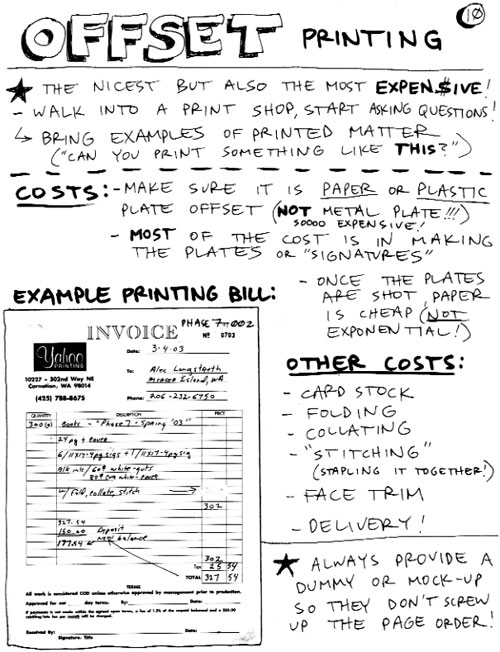 10
OFFSET PRINTING
★ THE NICEST BUT ALSO THE MOST EXPEN$IVE!
- WALK INTO A PRINT SHOP, START ASKING QUESTIONS!
↳ BRING EXAMPLES OF PRINTED MATTER
("CAN YOU PRINT SOMETHING LIKE THIS?")
COSTS: - MAKE SURE IT IS PAPER OR PLASTIC
PLATE OFFSET (NOT METAL PLATE!!!)
SOOOO EXPENSIVE!
- MOST OF THE COST IS IN MAKING
THE PLATES OR "SIGNATURES"
- ONCE THE PLATES
ARE SHOT, PAPER
IS CHEAP (NOT
EXPONENTIAL!)
EXAMPLE PRINTING BILL:
PHASE 7 #002
INVOICE
No 0703
Yahoo
PRINTING
Date: 3-4-03
10227 - 302nd Way NE
Carnation, WA 98014
To: Alec Longstreth
Mercer Island, WA
(425) 788-8675
Phone: 206-232-6750
QUANTITY DESCRIPTION PRICE
Books - "Phase 7 - Spring '03"
24 pg + cover
6/11x17-4pg sigs + 1/11x17-4pg sig
Blk ink/60# white-guts
80# white-cover
w/ Fold, collate, stitch
302
327.54
150.00 Deposit
177.54 new balance
302
Tax 25 54
TOTAL 327 54
TERMS
All work is considered COD unless otherwise approved by management prior to production.
Approved for net day terms. By: Date:
If payments is not made within the agreed upon terms, a fee of 1.5% of the unpaid balanced and a $20.00
rebilling/late fee per month will be charged.
Received By: Date:
Signature, Title
OTHER COSTS:
- CARD STOCK
- FOLDING
- COLLATING
- "STITCHING"
(STAPLING IT TOGETHER!)
- FACE TRIM
- DELIVERY!
★ ALWAYS PROVIDE A
DUMMY OR MOCK-UP
SO THEY DON'T SCREW
UP THE PAGE ORDER!